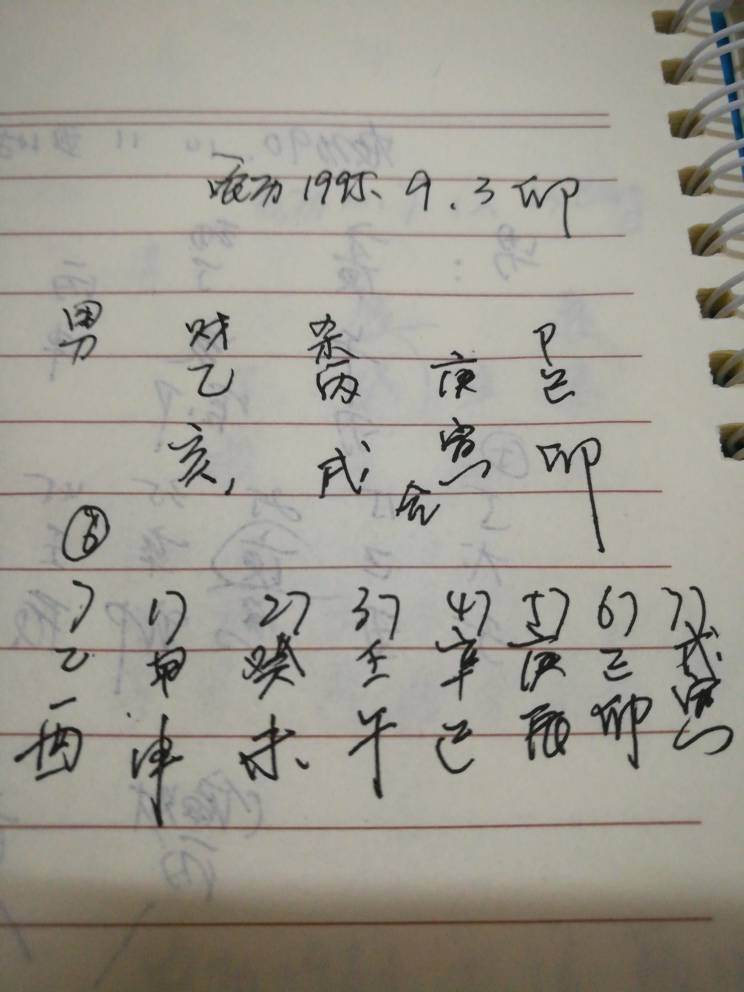 1995.9.3 卯
男 财 杀 P
乙 丙 庚 己
亥, 戌 寅 卯
合
⑥
7 17 27 37 47 57 67 77
乙 甲 癸 壬 辛 庚 己 戊
酉 申 未、 午 巳 辰 卯 寅